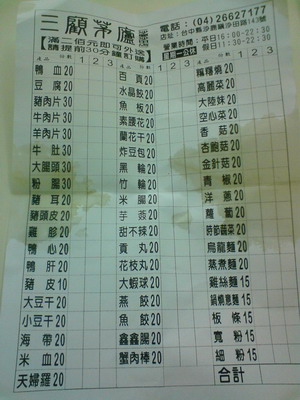 三顧茅廬
電話：(04)26627177
滿二佰元即可外送
請提前30分鐘訂購
店址：台中縣沙鹿鎮沙田路143號
營業時間：平日16:00-22:30
星期一公休 假日11:30-22:30
產品 份數 1 2 3 產品 份數 1 2 3 產品 份數 1 2 3
鴨血20
豆腐20
豬肉片30
牛肉片30
羊肉片30
牛肚30
大腸頭30
粉腸30
豬耳20
豬頭皮20
雞胗20
鴨心20
鴨肝20
豬皮10
大豆干20
小豆干20
海帶20
米血20
天婦羅20
百頁20
水晶餃20
魚板20
素腰花20
蘭花干20
炸豆包20
黑輪20
竹輪20
米腸20
芋簽20
甜不辣20
貢丸20
花枝丸20
大蝦球20
燕餃20
魚餃20
鑫鑫腸20
蟹肉棒20
猴頭菇20
高麗菜20
大陸妹20
空心菜20
香菇20
杏鮑菇20
金針菇20
青椒20
洋蔥20
蘿蔔20
時節蔬菜20
烏龍麵20
蒸煮麵20
雞絲麵15
鍋燒意麵15
板條15
寬粉15
細粉15
合計